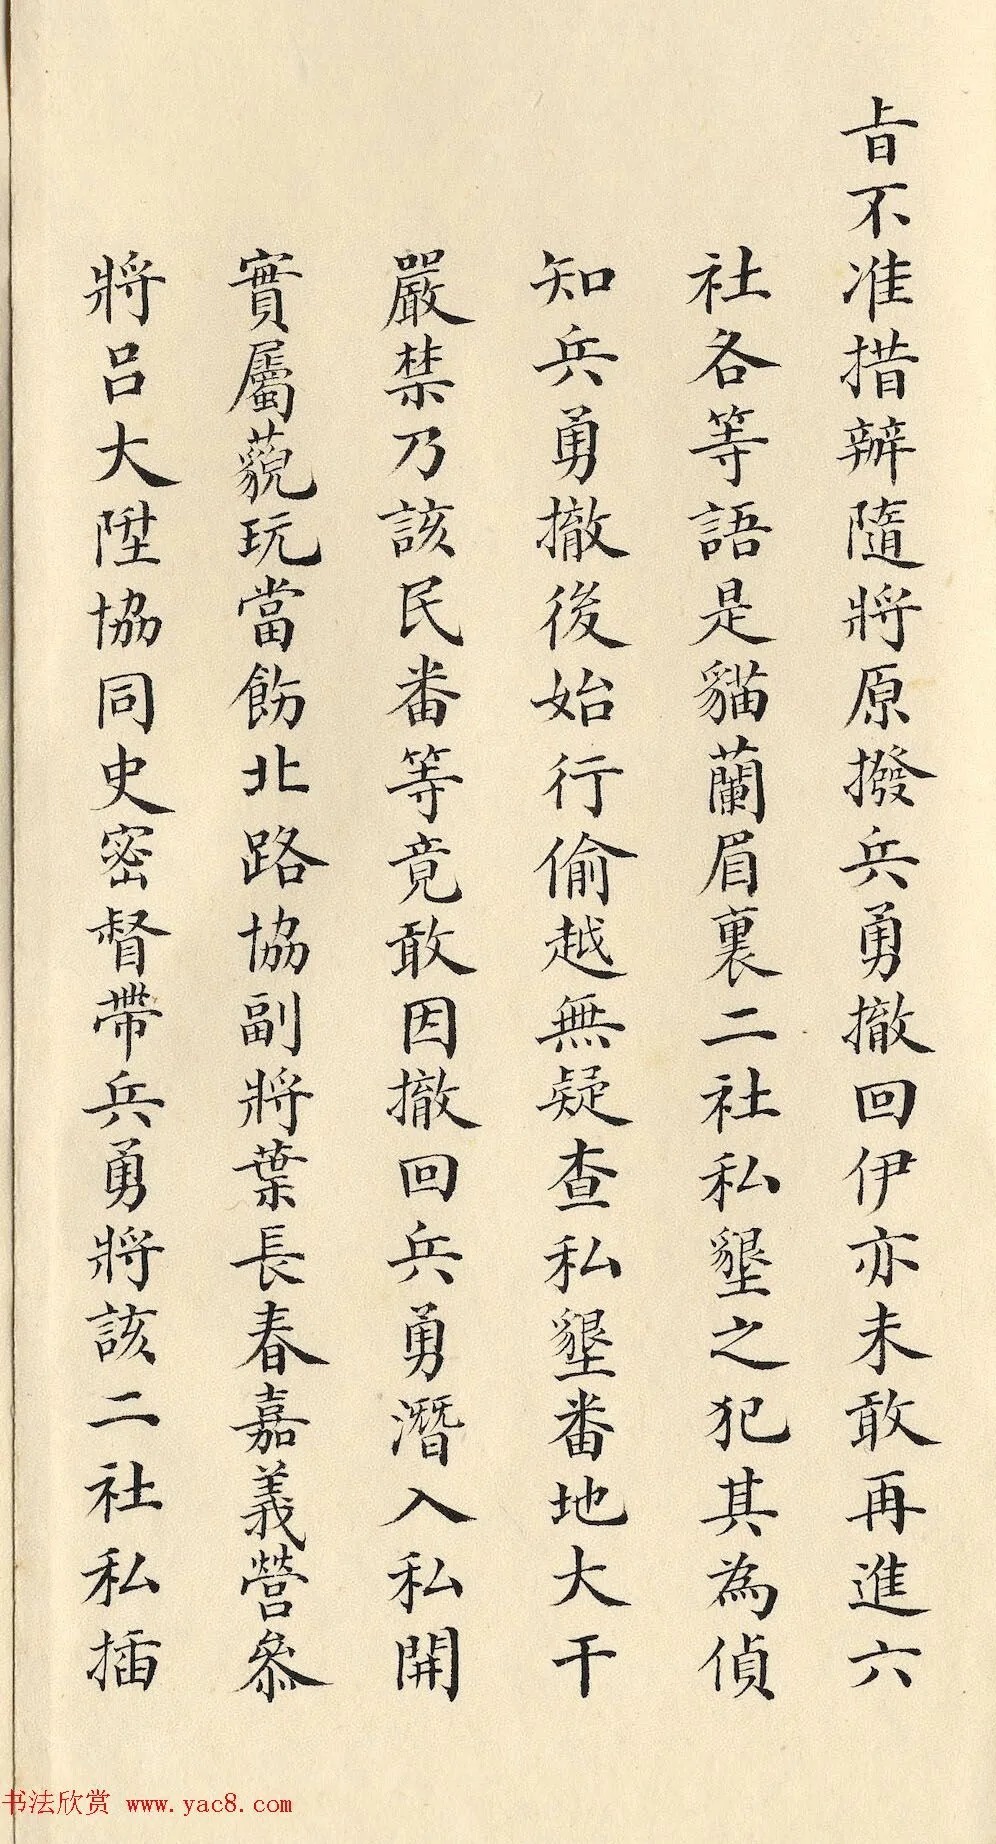 旨不准措辦隨將原撥兵勇撤回伊亦未敢再進六
社各等語是貓蘭眉裏二社私墾之犯其為偵
知兵勇撤後始行偷越無疑查私墾番地大干
嚴禁乃該民番等竟敢因撤回兵勇潛入私開
實屬藐玩當飭北路協副將葉長春嘉義營叅
將呂大陞協同史密督帶兵勇將該二社私插
书法欣赏 www.yac8.com